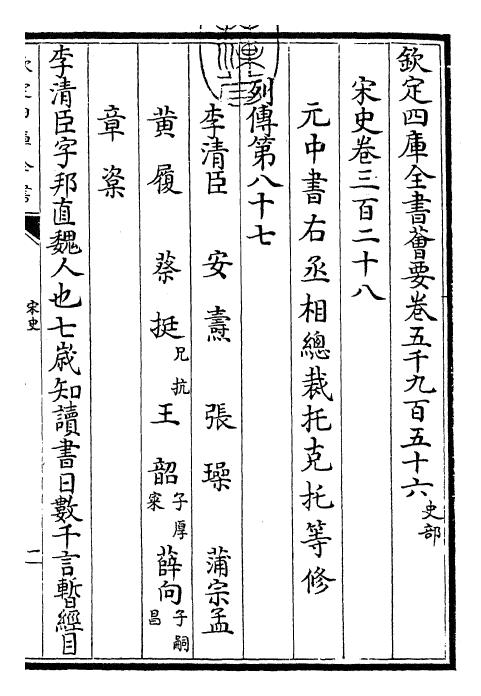 欽定四庫全書薈要卷五千九百五十六史部
宋史卷三百二十八
元中書右丞相總裁托克托等修
列傳第八十七
李清臣 安燾 張璪 蒲宗孟
黃履 蔡挺兄抗 王韶子厚寀 薛向子嗣昌
章楶
李清臣字邦直魏人也七歲知讀書日數千言暫經目
宋史
二